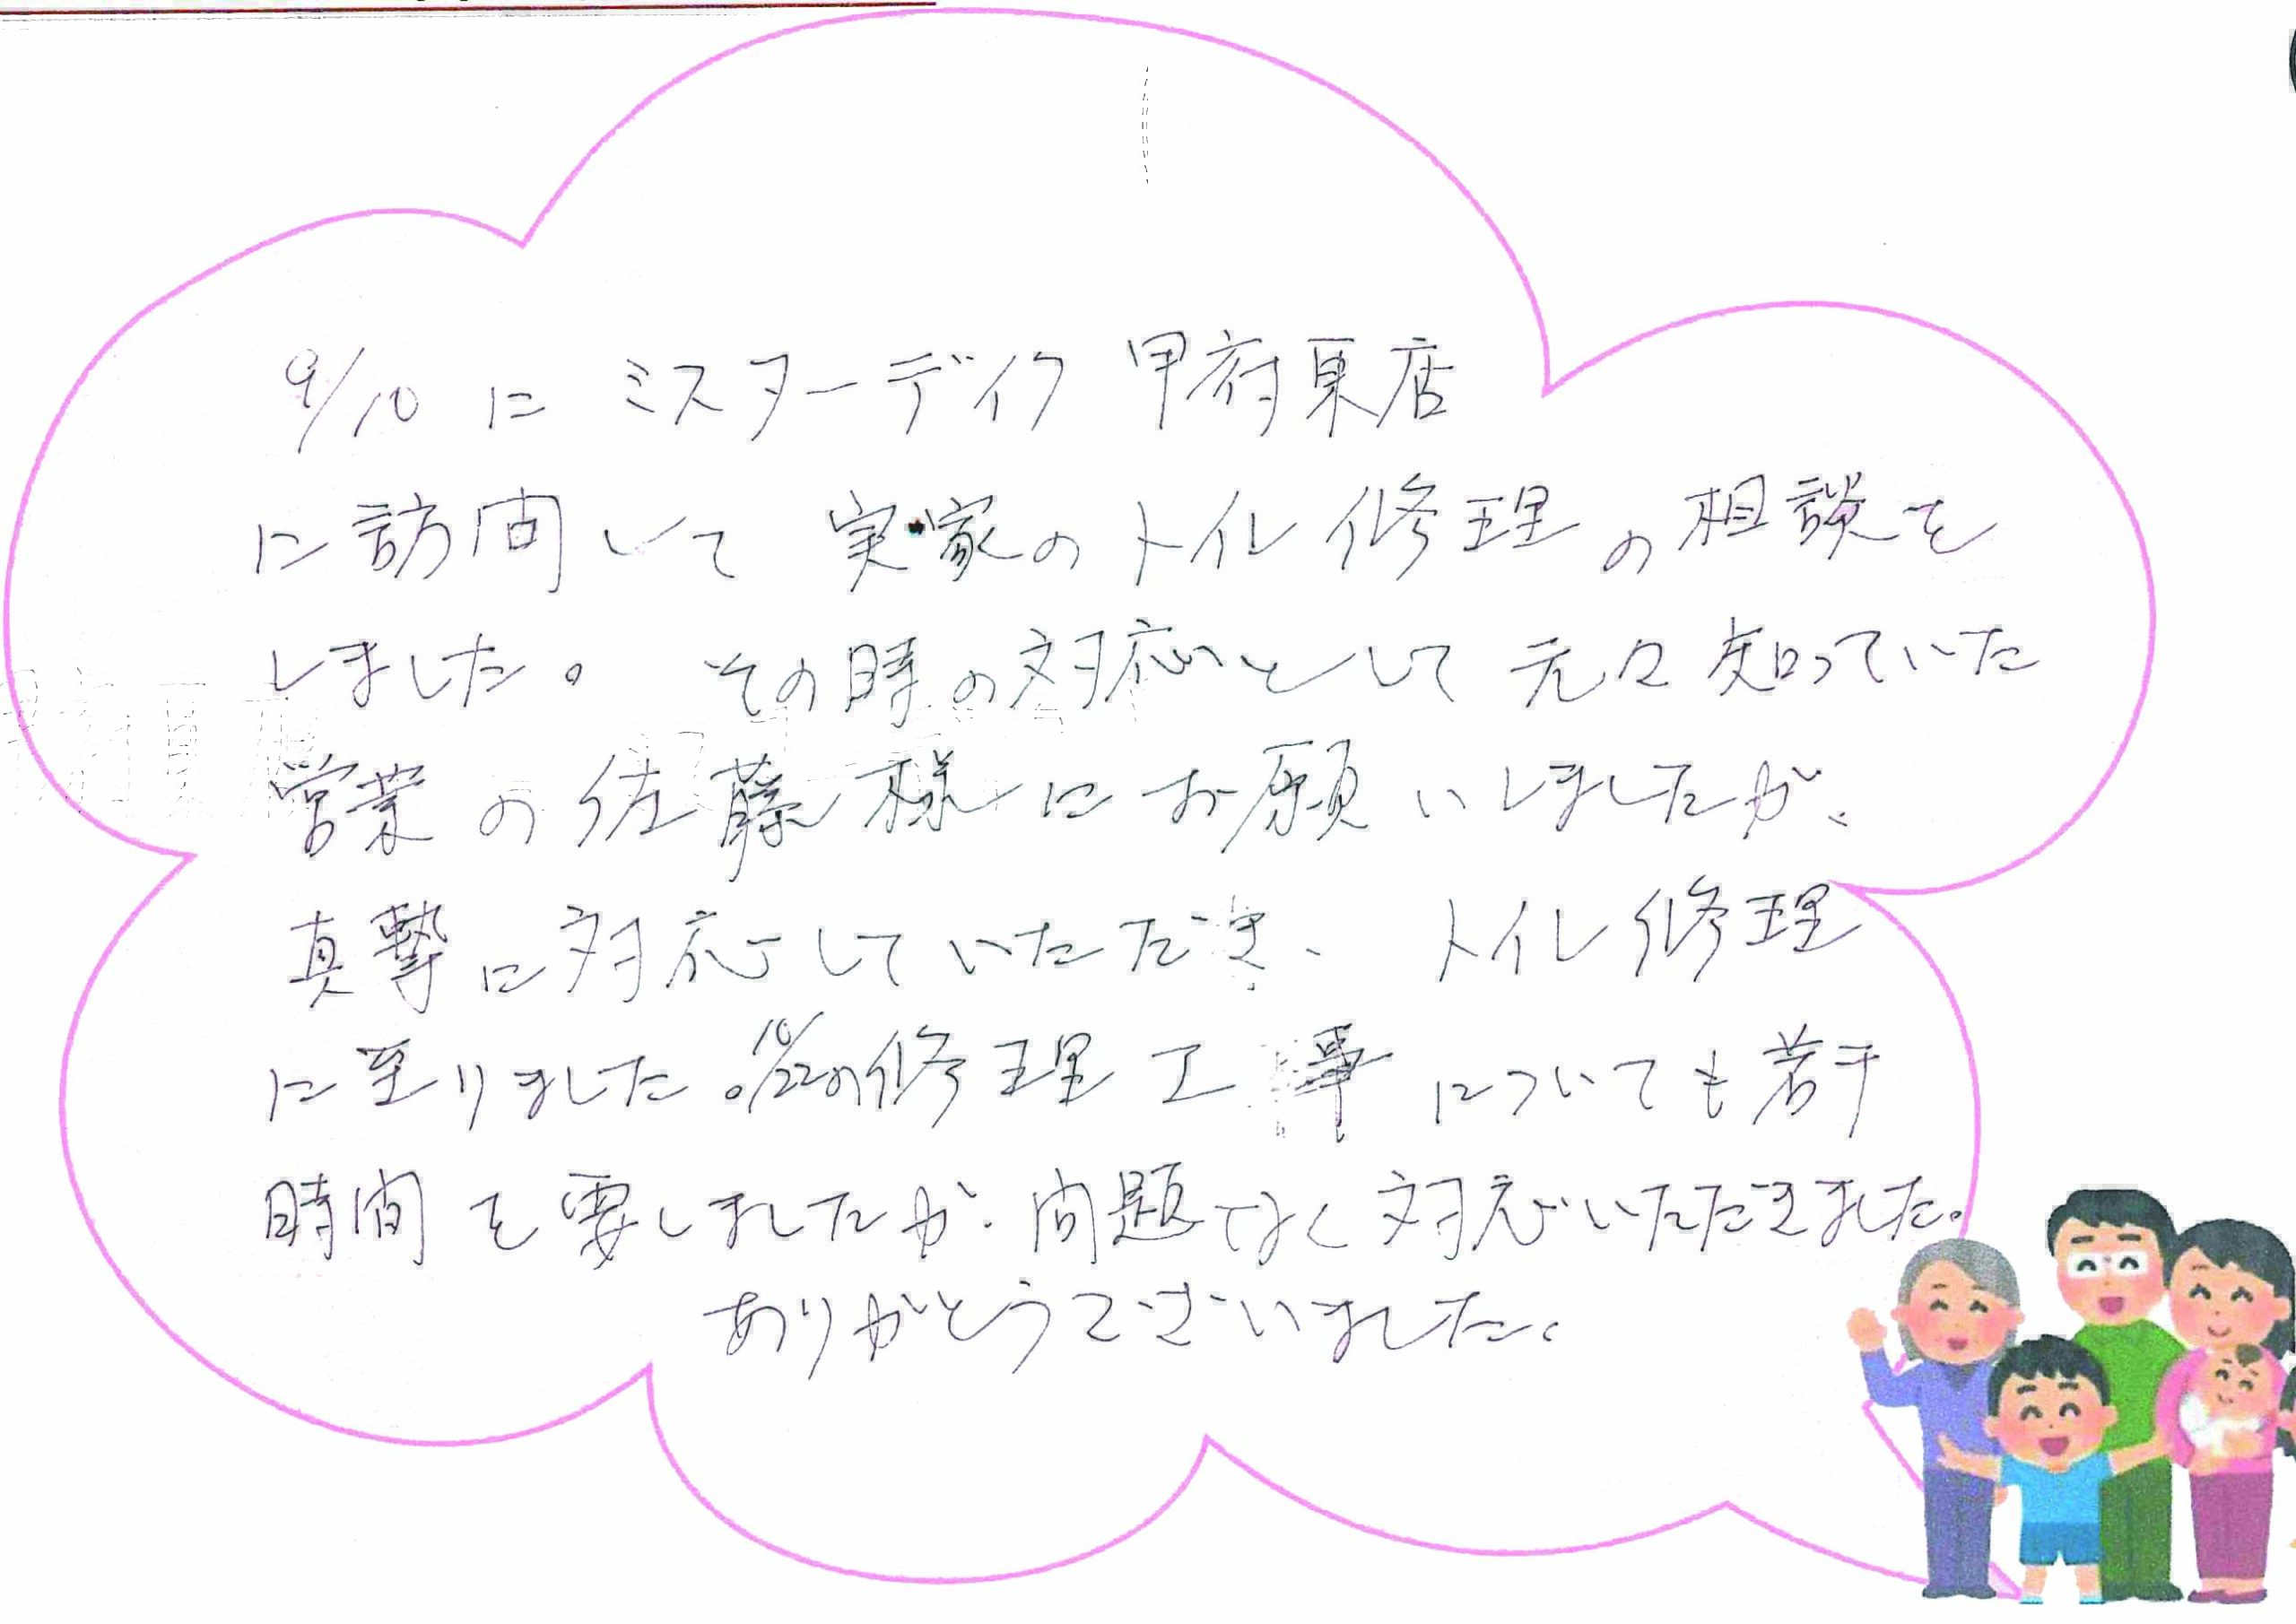 9/10 に ミスターデイク 甲府東店
に訪問して 実家のトイレ修理の相談を
しました。 その時の対応として元々知っていた
営業の佐藤様にお願いしましたが、
真摯に対応していただき、 トイレ修理
に至りました。10/22の修理工事についても若干
時間を要しましたが、問題なく対応いただきました。
ありがとうございました。